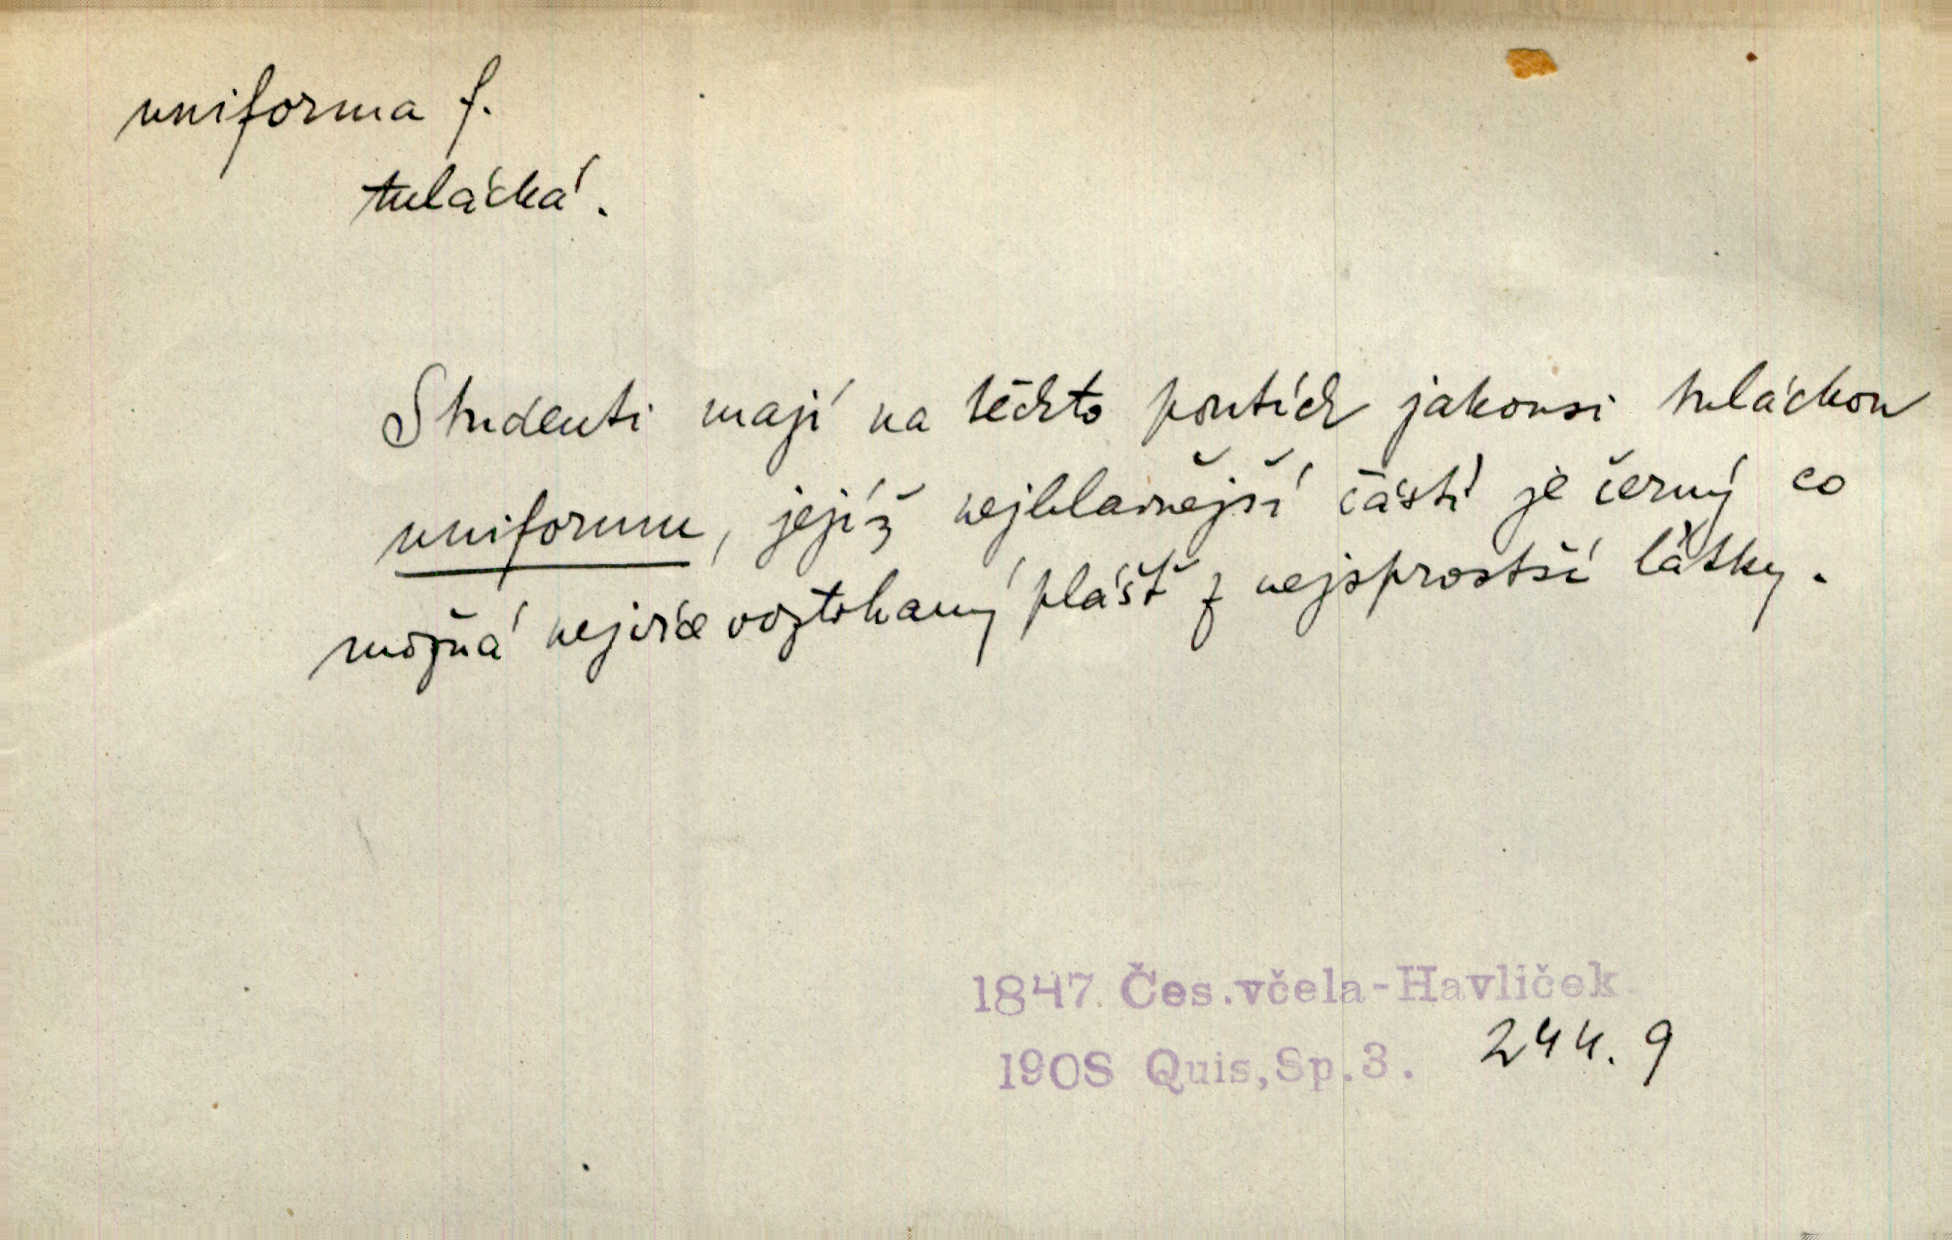 uniforma f.
tulácká.
Studenti mají na těchto poutích jakousi tuláckou
uniformu, jejíž nejhlavnější částí je černý co
možná nejvíce roztrhaný plášť z nejsprostší látky.
1847 Čes.včela-Havlíček
1908 Quis,Sp.3. 244.9